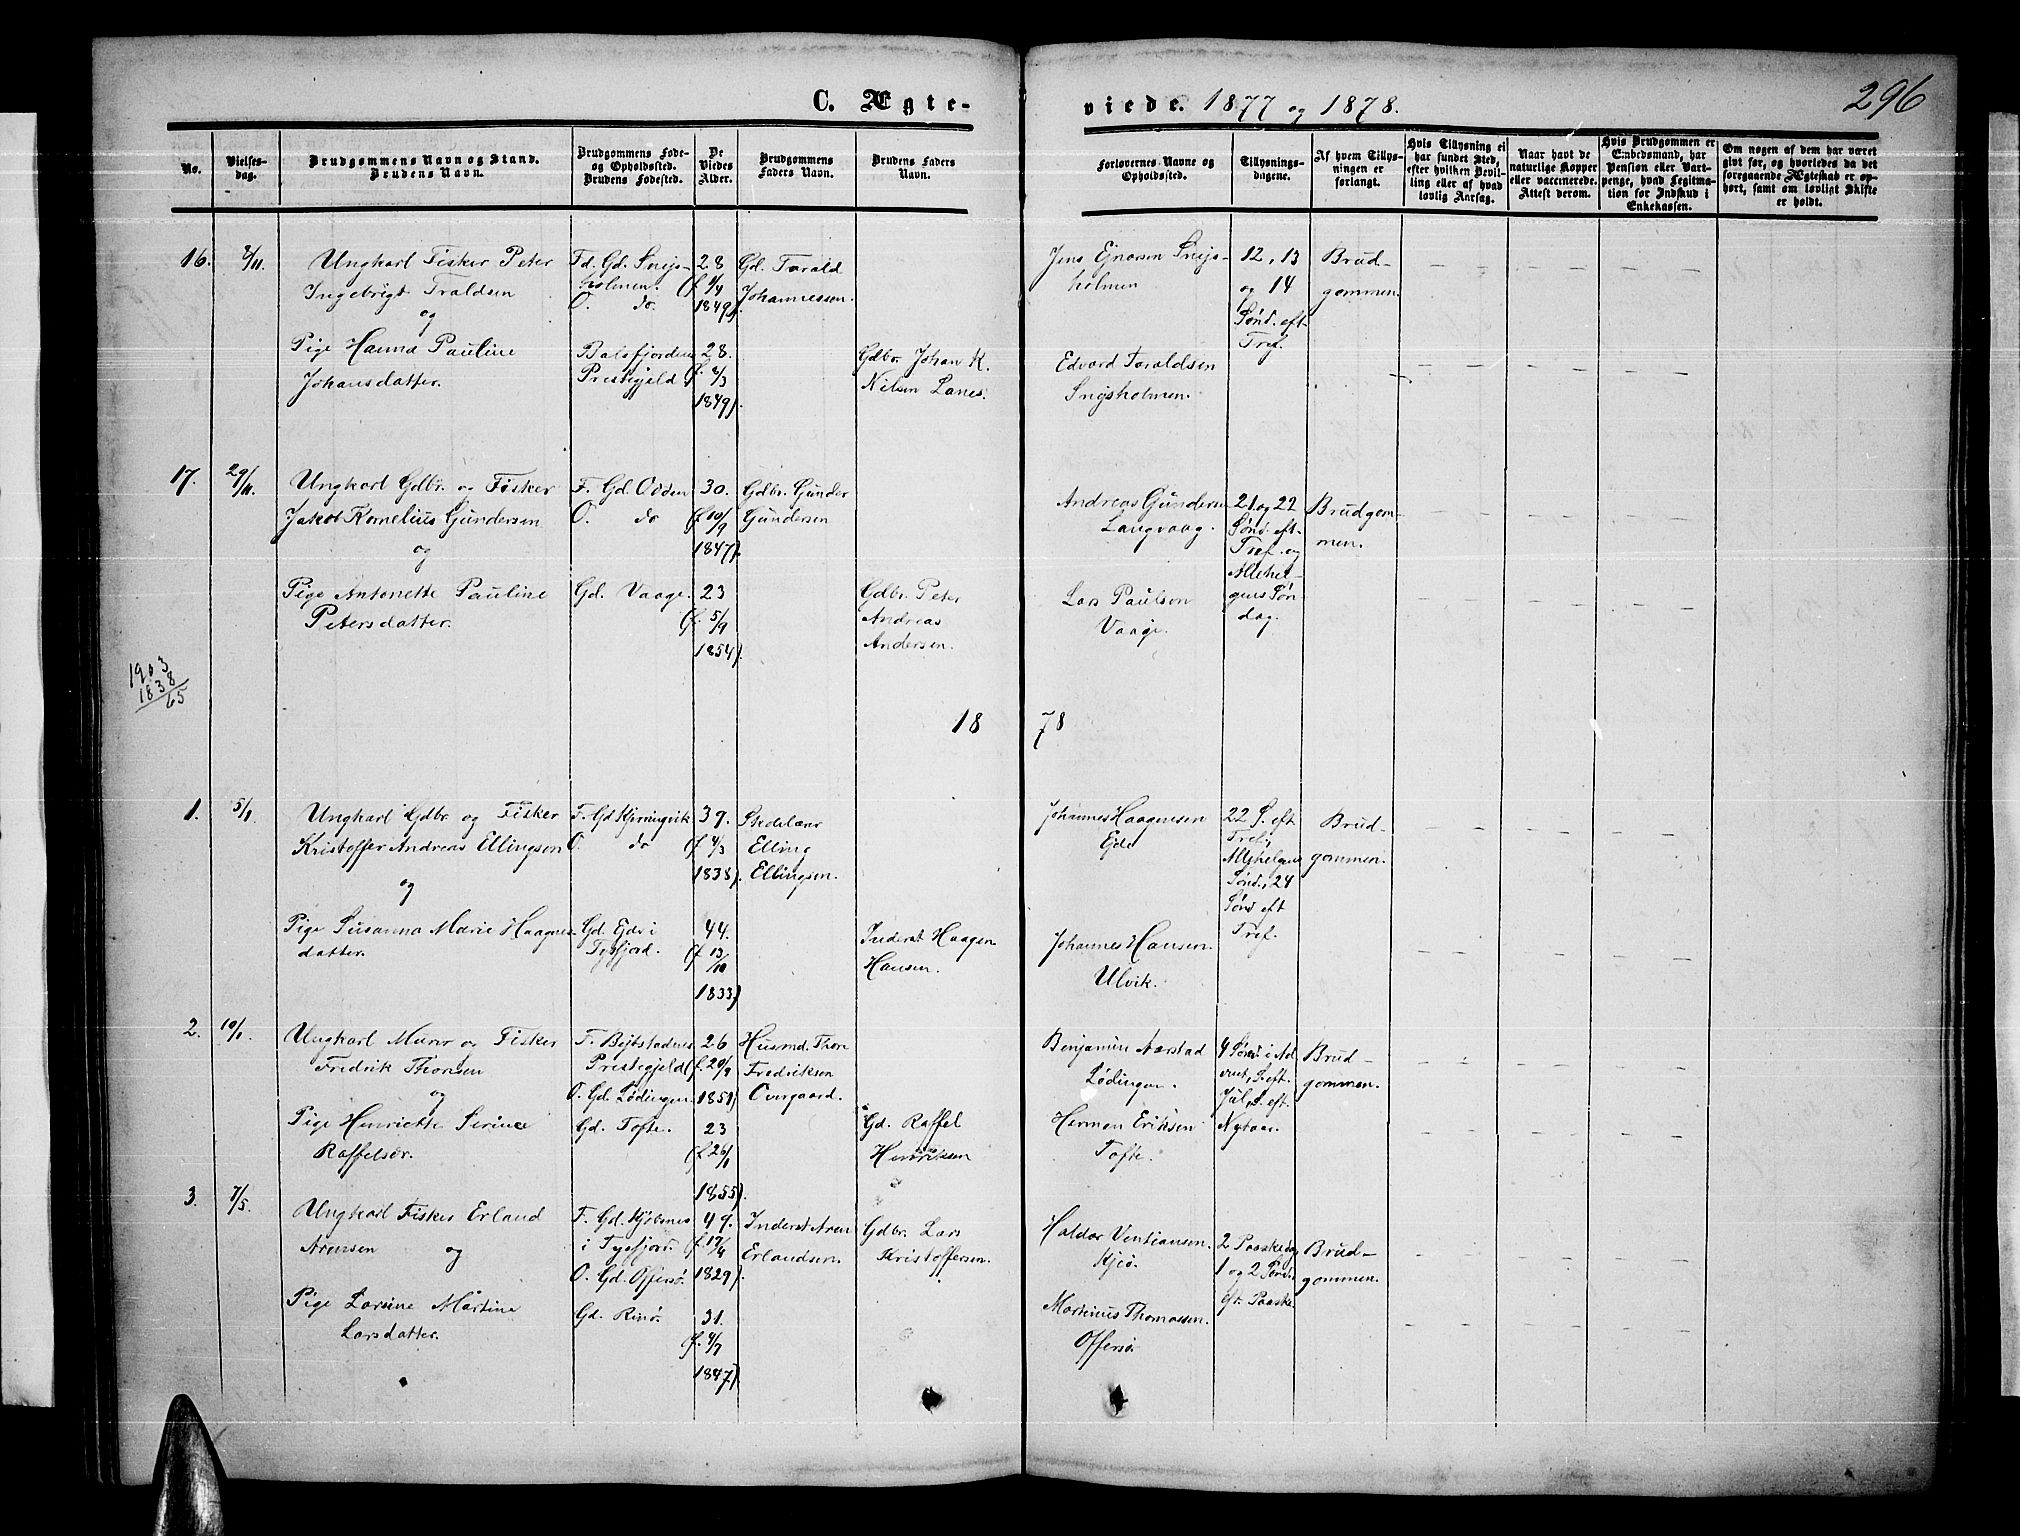 C. Ægte-
viede. 1877 og 1878.
296
No.
Vielses-
dag.
Brudgommens Navn og Stand.
Brudens Navn.
Brudgommens Føde-
og Opholdssted.
Brudens Fødested.
De
Viedes
Alder.
Brudgommens
Faders Navn.
Brudens Faders
Navn.
Forlovernes Navne og
Opholdssted.
Tillysnings-
dagene.
Af hvem Tillys-
ningen er
forlangt.
Hvis Tillysning ei
har fundet Sted,
efter hvilken Bevil-
ling eller af hvad
lovlig Aarsag.
Naar havt de
naturlige Kopper
eller vaccinerede.
Attest derom.
Hvis Brudgommen er
Enbedsmand, har
Pension eller Vart-
penge, hvad Legitima-
tion for Indskud i
Enkekassen.
Om nogen af dem har været
givt før, og hvorledes da det
foregaaende Ægteskab er op-
hørt, samt om lovligt Skifte
er holdt.
16. 8/11. Ungkarl Fisker Peter
Ingebrigt Traldsen
og
Pige Hanna Pauline
Johansdatter.
Fd. Gd. Snijs-
holmen.
O. do.
Balsfjorden
Prestegjeld
28
1849).
28.
(f. 8/3
1849).
Gd. Tarald
Johannessen.
Gdbr. Johan K.
Nilsen Lanes.
Jens Ejnarsen Snijs-
holmen
Edvard Taraldsen
Snijsholmen.
12, 13
og 14
Sønd. eft.
Tref.
Brud-
gommen.
17. 29/11. Ungkarl Gdbr. og Fisker
Jakob Kornelius Gundersen
og
Pige Antonette Pauline
Petersdatter.
F. Gd. Odden
O. do
Gd. Vaage.
30.
(f. 10/9
1847).
23
(f. 5/9
1854).
Gdbr. Gunder
Gundersen
Gdbr. Peter
Andreas
Andersen.
Andreas Gunderse
Langvaag.
Lars Paulson
Vaage.
21 og 22
Sønd. eft.
Tref. og
Allehel-
gens Søn
dag.
Brudgom-
men.
1903
1838
65
18 78
1. 5/1. Ungkarl Gdbr. og Fisker
Kristoffer Andreas Ellingsen
og
Pige Susanna Marie Haagens-
datter.
F. Gd Kjerringvik
O. do
Gd. Ejde i
Tysfjord.
39.
(f. 4/3
1838).
44.
(f. 13/10
1833)
Elling
Ellingsen.
Inderst Haagen
Hansen.
Johannes Haagensen
Ejde
Johannes Hansen.
Ulvik.
22 S. eft
Tref.,
Allehelgens
Sønd., 24
Sønd eft
Tref.
Brud-
gommen.
2. 10/1. Ungkarl Murer og Fisker
Fredrik Thorsen
og
Pige Henriette Serine
Raffelsdr.
F. Bejtstadens
Prestegjeld
O. Gd. Lødingen.
Gd. Tofte.
26
(f. 20/9
1851)
23
(f. 26/1
1855).
Husmd. Thore
Fredriksen
Overgaard.
Gd. Raffel
Henriksen
Benjamin Aarstad
Lødingen.
Herman Eriksen
Tofte.
4 Sønd i Ad
vent, S. eft.
Jul, S. eft.
Nytaar.
Brud-
gommen.
3. 7/5. Ungkarl Fisker Erland
Arensen og
Pige Lorine Martine
Larsdatter.
F. Gd. Kjøbnes
i Tysfjord
O. Gd. Offersø.
Gd. Rinø.
49.
(f. 17/4
1829).
31.
(f. 4/7
1847).
Inderst Aren
Erlandsen.
Gdbr. Lars
Kristoffersen.
Haldor Ventiansen.
Kjeø.
Martinus Thomassen.
Offersø.
2 Paaskedag
1 og 2 Sønd.
eft. Paaske
Brud-
gommen.